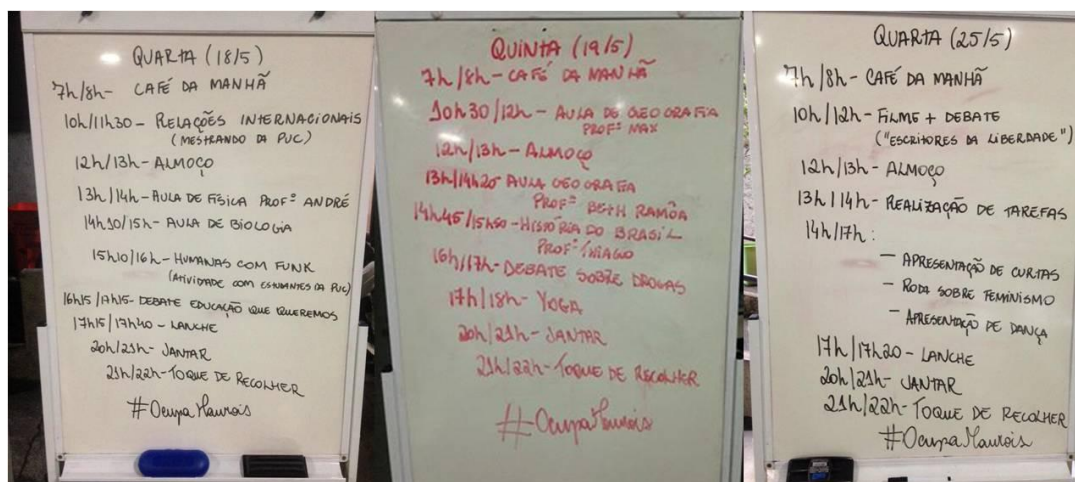 QUARTA (18/5)
7h/8h- CAFÉ DA MANHÃ
10h/11h30 - RELAÇÕES INTERNACIONAIS
(MESTRANDO DA PUC)
12h/13h- ALMOÇO
13h/14h- AULA DE FÍSICA PROFº ANDRÉ
14h10/15h- AULA DE BIOLOGIA
15h10/16h- HUMANAS COM FUNK
(ATIVIDADE COM ESTUDANTES DA PUC)
16h15/17h15- DEBATE EDUCAÇÃO QUE QUEREMOS
17h15/17h40- LANCHE
20h/21h- JANTAR
21h/22h- TOQUE DE RECOLHER
#OcupaMaurois
QUINTA (19/5)
7h/8h- CAFÉ DA MANHÃ
10h30/12h- AULA DE GEOGRAFIA
PROFº MAX
12h/13h- ALMOÇO
13h/14h20- AULA GEOGRAFIA
PROFª BETH RAMÔA
14h45/15h50- HISTÓRIA DO BRASIL
PROFº THIAGO
16h/17h- DEBATE SOBRE DROGAS
17h/18h- YOGA
20h/21h- JANTAR
21h/22h- TOQUE DE RECOLHER
#OcupaMaurois
QUARTA (25/5)
7h/8h- CAFÉ DA MANHÃ
10h/12h- FILME + DEBATE
("ESCRITORES DA LIBERDADE")
12h/13h- ALMOÇO
13h/14h- REALIZAÇÃO DE TAREFAS
14h/17h:
- APRESENTAÇÃO DE CURTAS
- RODA SOBRE FEMINISMO
- APRESENTAÇÃO DE DANÇA
17h/17h20- LANCHE
20h/21h- JANTAR
21h/22h- TOQUE DE RECOLHER
#OcupaMaurois